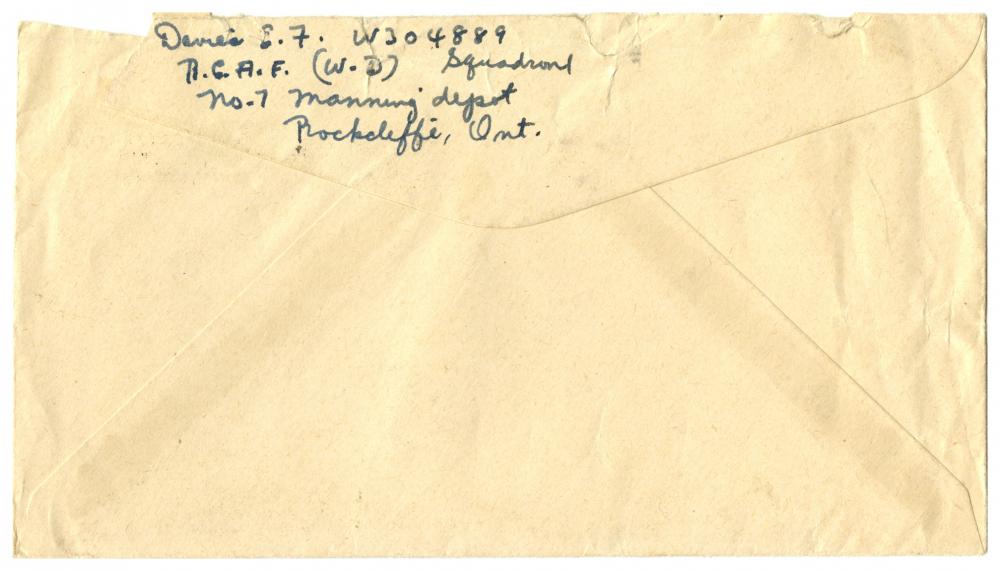 Davies E. F. W304889
R.C.A.F. (W.D) Squadron 1
No. 7 Manning depot
Rockcliffe, Ont.